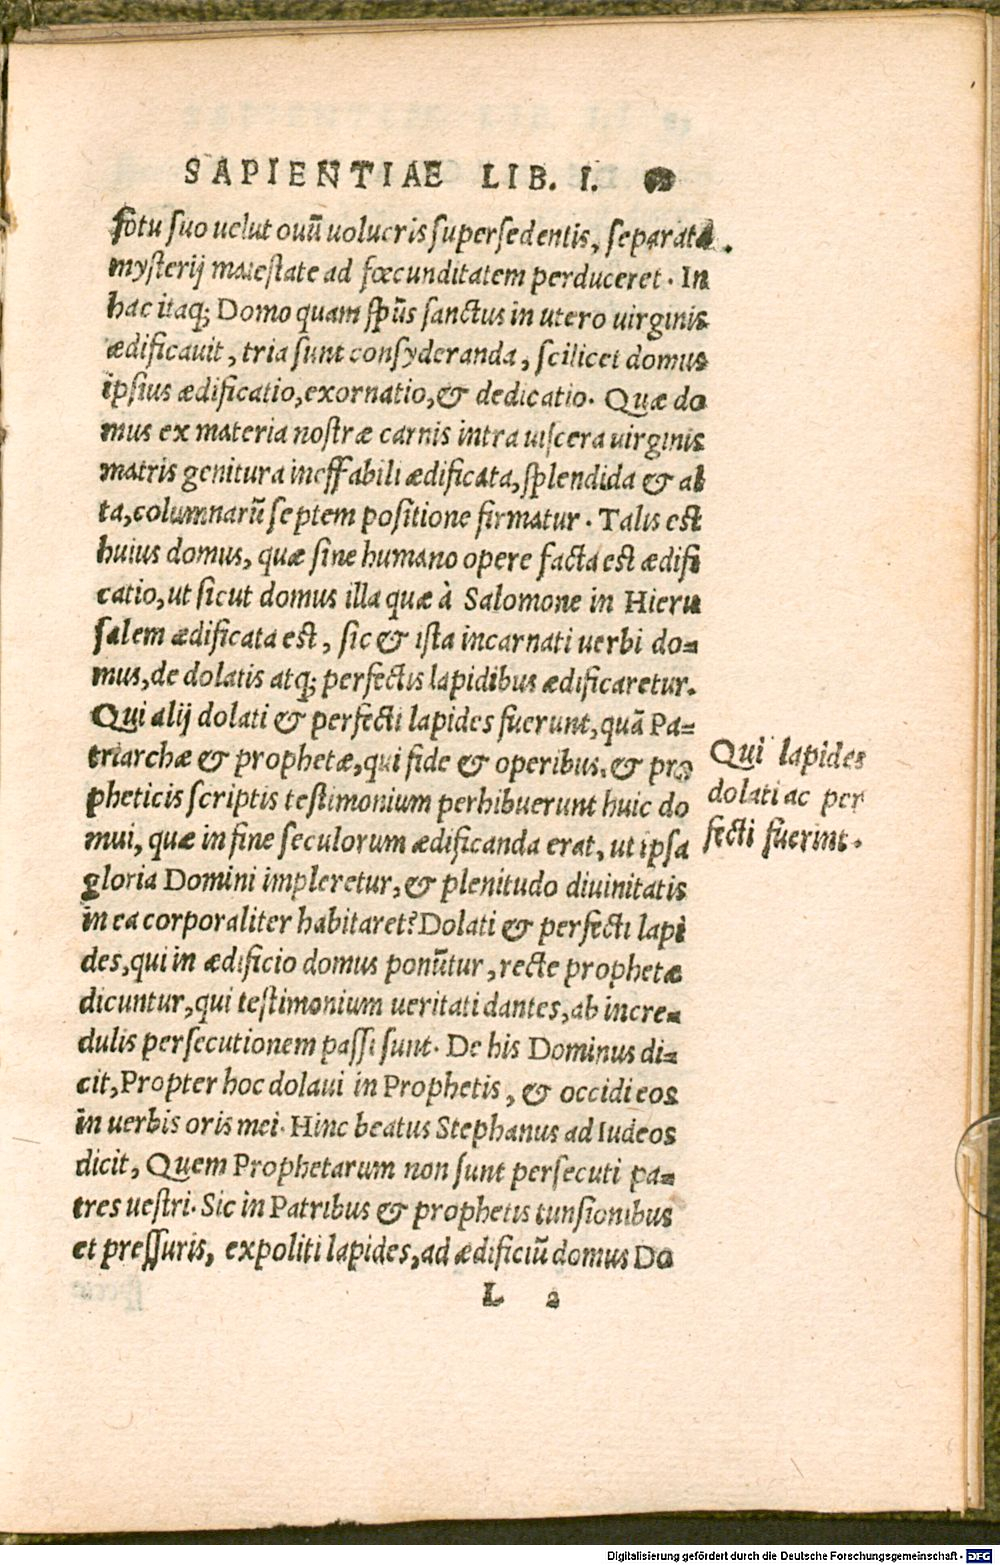 SAPIENTIAE LIB. I.
fotu suo uelut ouũ uolucris supersedentis, separata
mysterij maiestate ad fœcunditatem perduceret. In
hac itaq; Domo quam spũs sanctus in utero uirginis
ædificauit, tria sunt consyderanda, scilicet domus
ipsius ædificatio, exornatio, & dedicatio. Quæ do
mus ex materia nostræ carnis intra uiscera uirginis
matris genitura ineffabili ædificata, splendida & al
ta, columnarũ septem positione firmatur. Talis est
huius domus, quæ sine humano opere facta est ædifi
catio, ut sicut domus illa quæ à Salomone in Hieru
salem ædificata est, sic & ista incarnati uerbi do=
mus, de dolatis atq; perfectis lapidibus ædificaretur.
Qui alij dolati & perfecti lapides fuerunt, quã Pa=
triarchæ & prophetæ, qui fide & operibus, & pro
pheticis scriptis testimonium perhibuerunt huic do
mui, quæ in fine seculorum ædificanda erat, ut ipsa
gloria Domini impleretur, & plenitudo diuinitatis
in ea corporaliter habitaret? Dolati & perfecti lapi
des, qui in ædificio domus ponũtur, recte prophetæ
dicuntur, qui testimonium ueritati dantes, ab incre=
dulis persecutionem passi sunt. De his Dominus di=
cit, Propter hoc dolaui in Prophetis, & occidi eos
in uerbis oris mei. Hinc beatus Stephanus ad Iudeos
dicit, Quem Prophetarum non sunt persecuti pa=
tres uestri. Sic in Patribus & prophetis tunsionibus
et pressuris, expoliti lapides, ad ædificiũ domus Do
L 2
Qui lapides
dolati ac per
fecti fuerint.
Digitalisierung gefördert durch die Deutsche Forschungsgemeinschaft - DFG